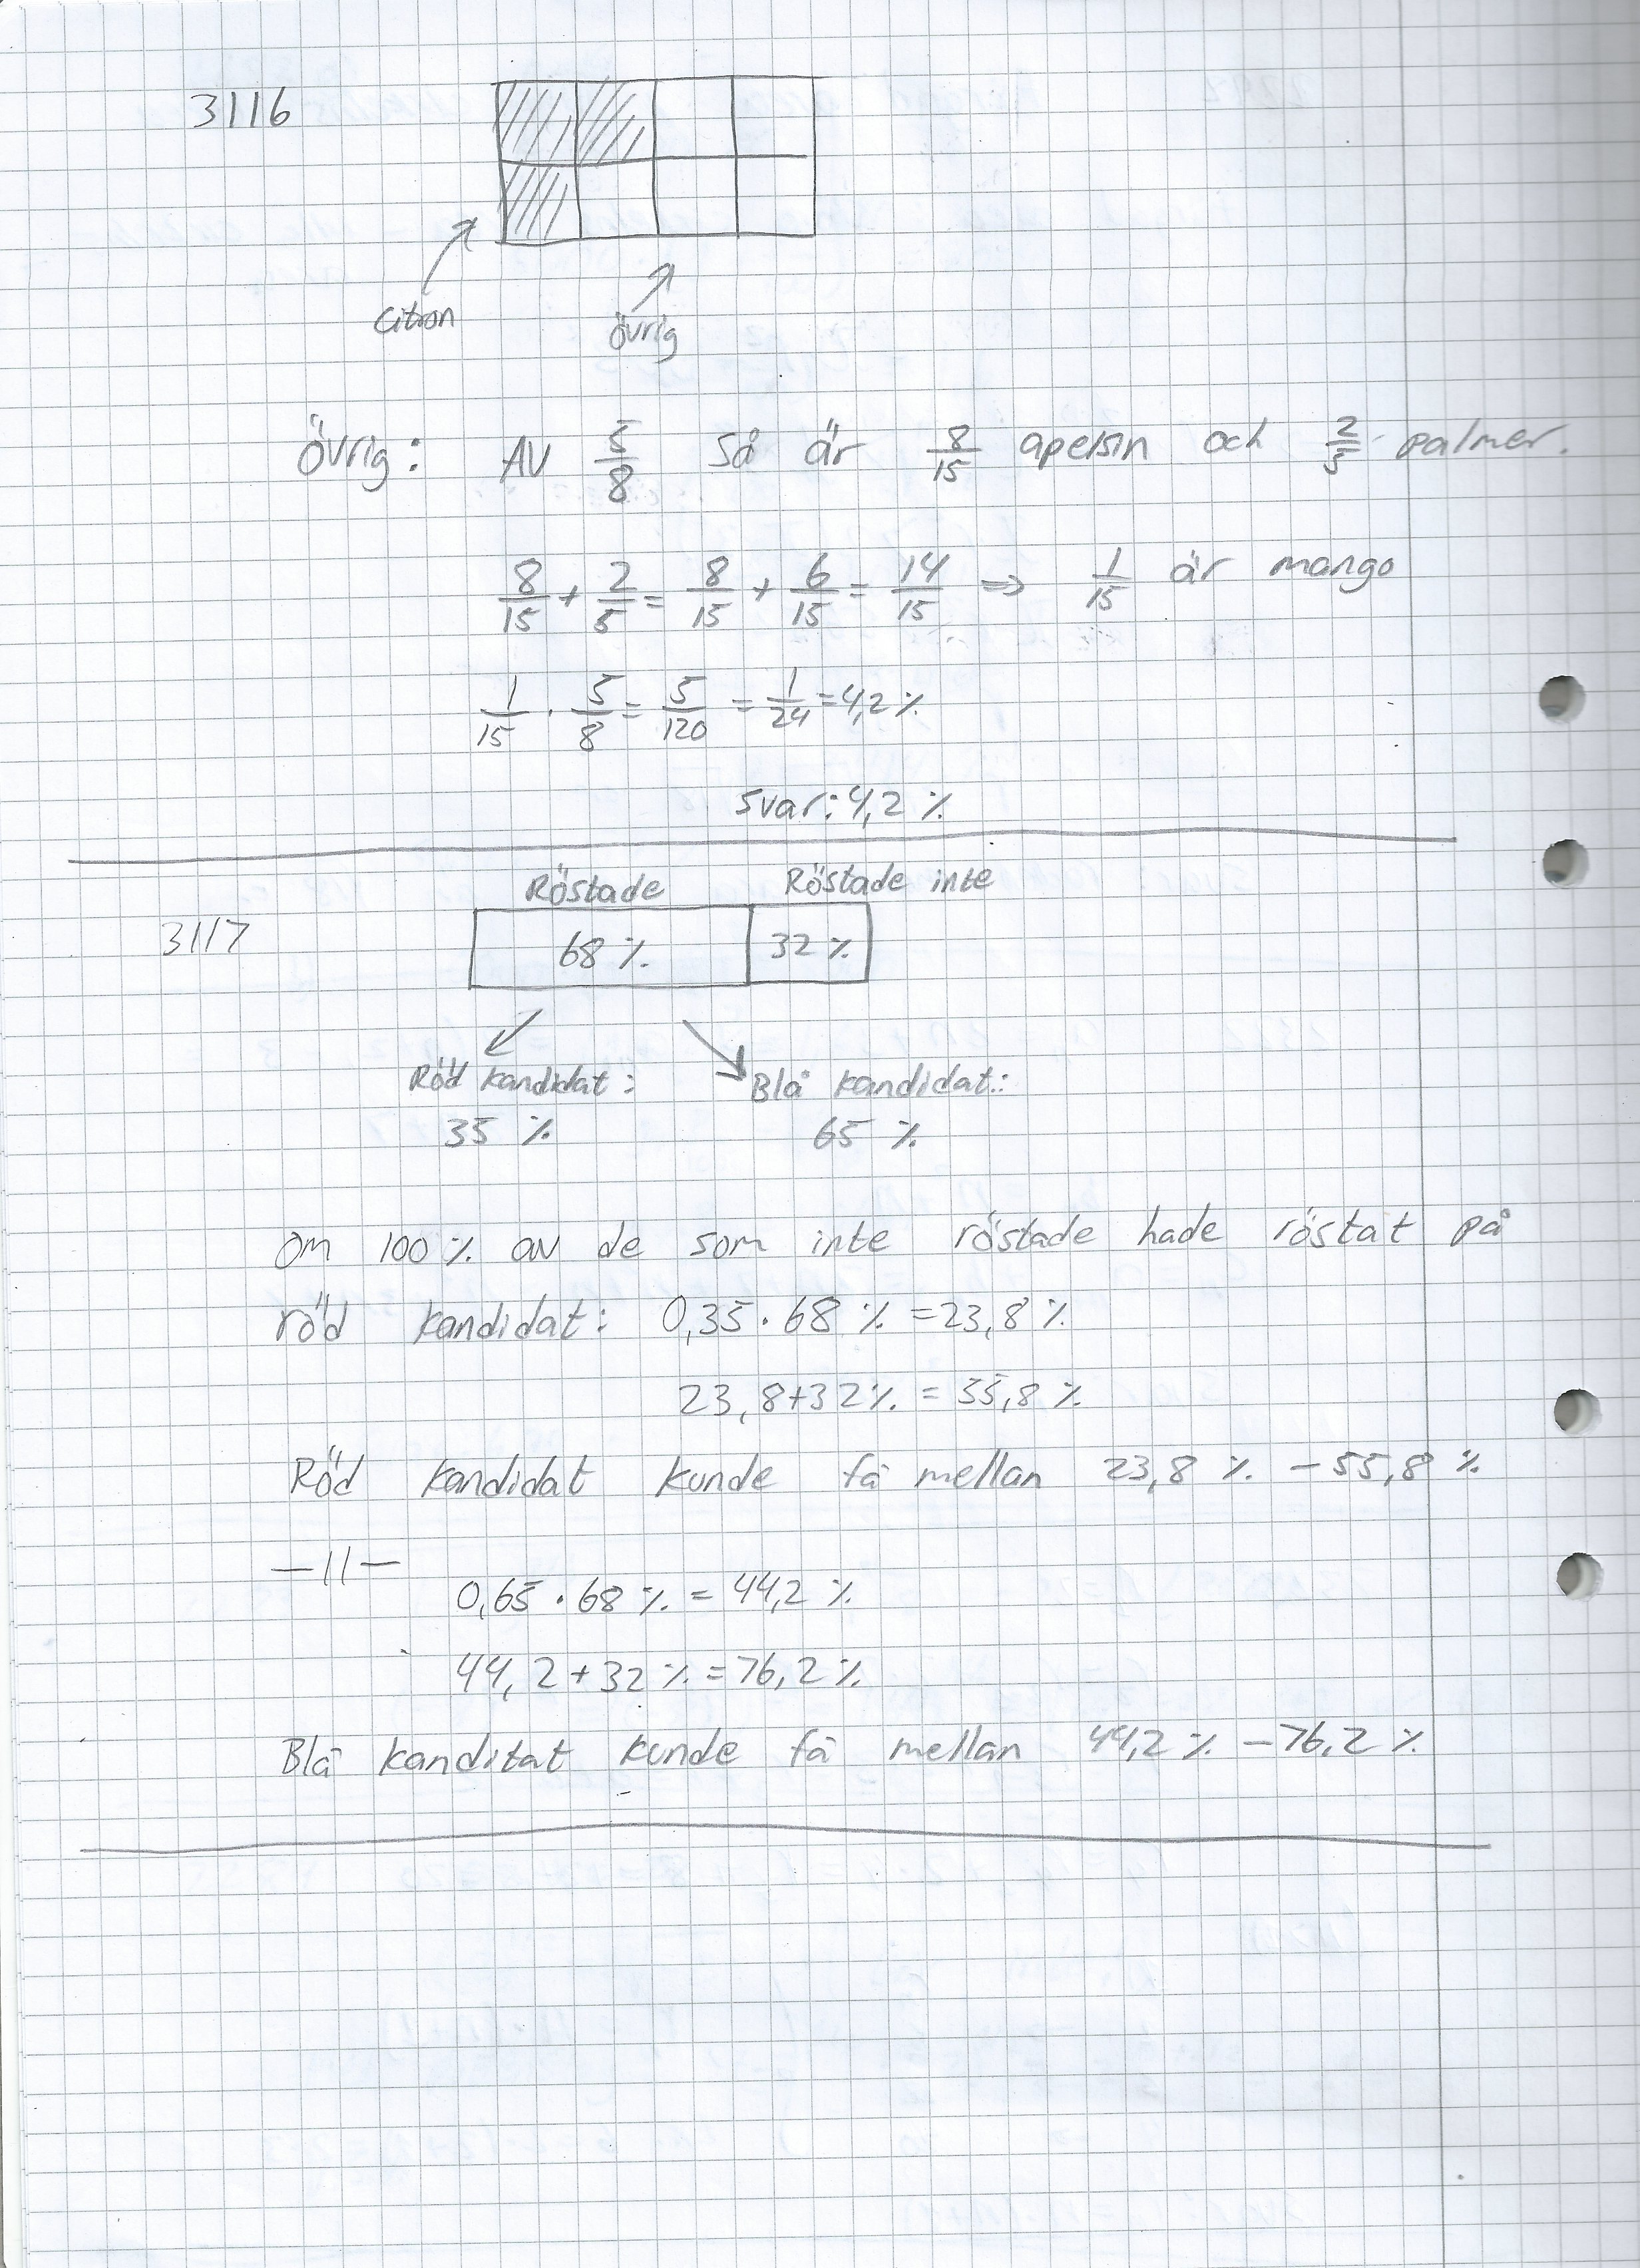 3116
citron
övrig
Övrig: AV 5/8 så är 8/15 apelsin och 2/5 palmer.
8/15 + 2/5 = 8/15 + 6/15 = 14/15 ⇒ 1/15 är mango
1/15 · 5/8 = 5/120 = 1/24 = 4,2 %
svar: 4,2 %
Röstade Röstade inte
3117 68 % 32 %
Röd kandidat: Blå kandidat:
35 % 65 %
Om 100 % av de som inte röstade hade röstat på
röd kandidat: 0,35 · 68 % = 23,8 %
23,8+32% = 55,8 %
Röd kandidat kunde få mellan 23,8 % – 55,8 %
—11—
0,65 · 68 % = 44,2 %
44,2 + 32 % = 76,2 %
Blå kanditat kunde få mellan 44,2 % – 76,2 %